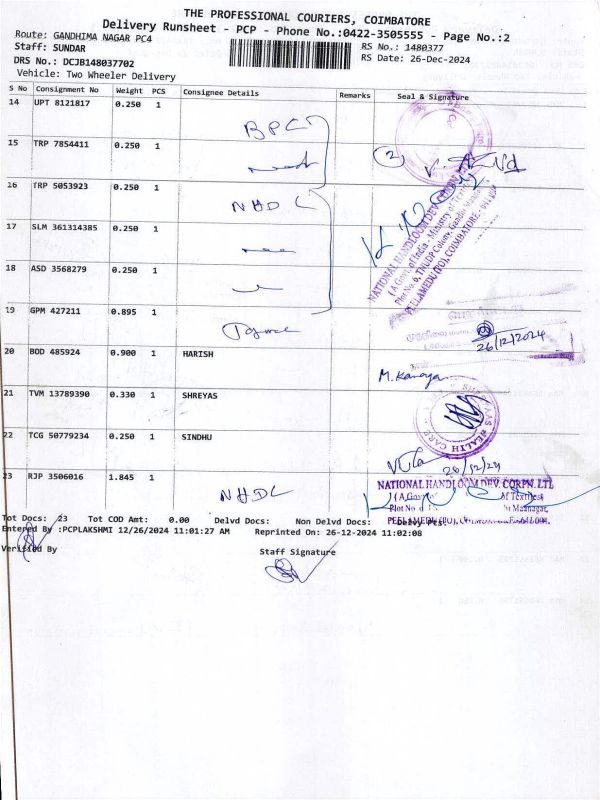 THE PROFESSIONAL COURIERS, COIMBATORE
Delivery Runsheet - PCP - Phone No.:0422-3505555 - Page No.:2
Route: GANDHIMA NAGAR PC4
RS No.: 1480377
Staff: SUNDAR
RS Date: 26-Dec-2024
DRS No.: DCJB148037702
Vehicle: Two Wheeler Delivery
S No Consignment No Weight PCS Consignee Details Remarks Seal & Signature
14 UPT 8121817 0.250 1
BPCL
15 TRP 7854411 0.250 1
2
16 TRP 5053923 0.250 1
NHDC
17 SLM 361314385 0.250 1
18 ASD 3568279 0.250 1
NATIONAL HANDLOOM DEV.
(A Govt. of India - Ministry of Textiles)
Plot No. 6, TNUDP Colony, Gandhi Maanagar,
PEELAMEDU (PO), COIMBATORE - 641 004.
19 GPM 427211 0.895 1
26/12/2024
20 BOD 485924 0.900 1 HARISH
M. Kanaga
21 TVM 13789390 0.330 1 SHREYAS
HEALTH CARE
22 TCG 50779234 0.250 1 SINDHU
26/12/24
23 RJP 3506016 1.845 1
NHDC
NATIONAL HANDLOOM DEV. CORPN. LTD
(A Govt of of Textiles)
Plot No Maanagar,
PEELAMEDU (PO),
Tot Docs: 23 Tot COD Amt: 0.00 Delvd Docs: Non Delvd Docs: Delvy Pts:
Entered By :PCPLAKSHMI 12/26/2024 11:01:27 AM Reprinted On: 26-12-2024 11:02:08
Verified By
Staff Signature